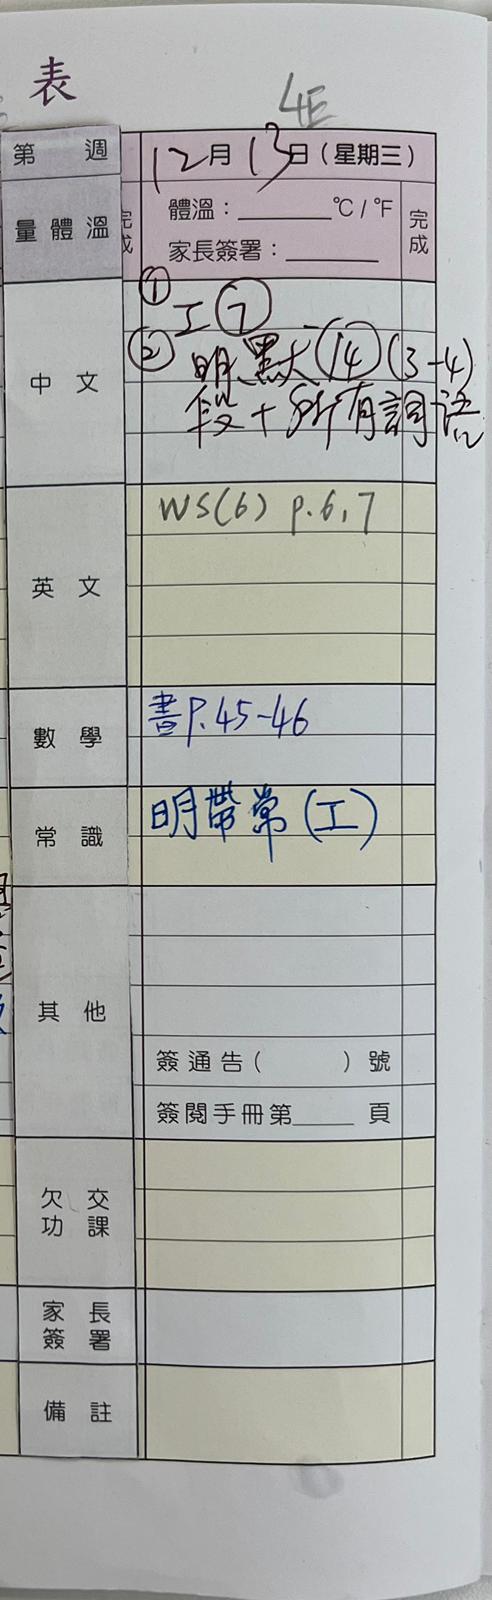 表
4E
第 週
12月13日(星期三)
量體溫
完成
體溫：______℃/℉
家長簽署：______
完成
中文
① 工⑦
② 明默⑭(3-4)
段+所有詞語
英文
WS(6) p.6,7
數學
書P.45-46
常識
明帶常(工)
其他
簽通告( )號
簽閱手冊第____頁
欠交
功課
家長
簽署
備註